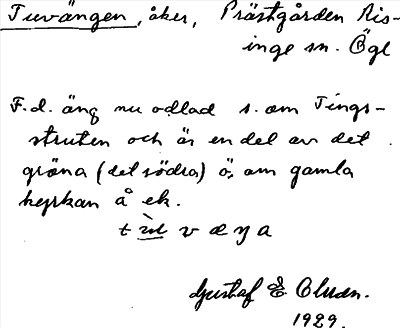 Tuvängen, åker, Prästgården Ris-
inge sn. Ögl
F.d. äng nu odlad s. om Tings-
struten och är en del av det
gröna (det södra) ö. om gamla
kyrkan å ek.
Gustaf E. Olson.
1929.